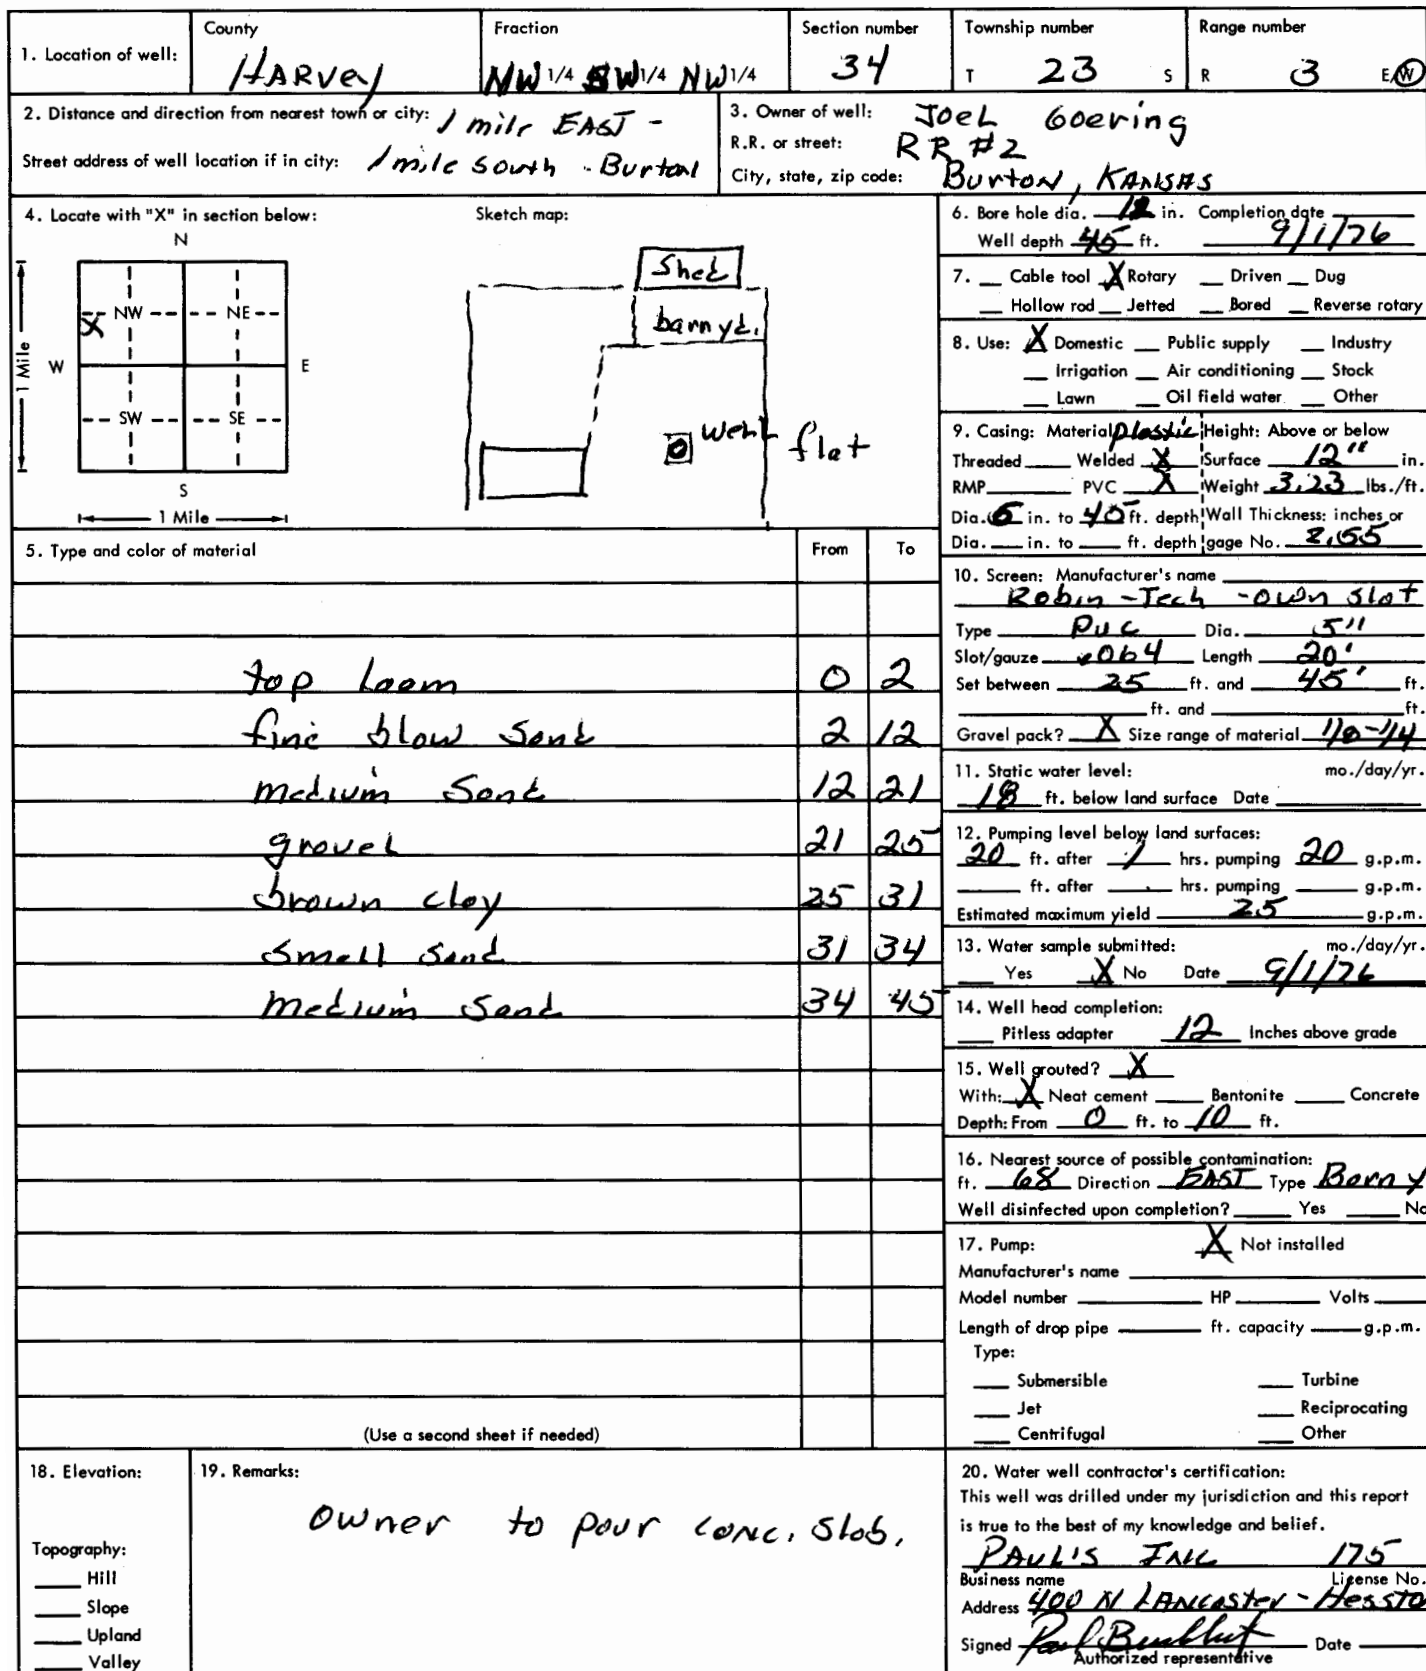 1. Location of well:
County
HARVey
Fraction
NW 1/4 SW 1/4 NW 1/4
Section number
34
Township number
T 23 S
Range number
R 3 E/W
2. Distance and direction from nearest town or city: 1 mile EAST -
Street address of well location if in city: 1 mile south - Burton
3. Owner of well: JoeL Goering
R.R. or street: RR #2
City, state, zip code: Burton, KANSAS
4. Locate with "X" in section below:
N
NW NE
X
W E
SW SE
S
1 Mile
1 Mile
Sketch map:
Shed
barnyd.
well flat
5. Type and color of material From To
top loom 0 2
fine blow sand 2 12
medium sand 12 21
gravel 21 25
brown clay 25 31
small sand 31 34
medium sand 34 45
(Use a second sheet if needed)
6. Bore hole dia. 12 in. Completion date
Well depth 45 ft. 9/1/76
7. __ Cable tool X Rotary __ Driven __ Dug
__ Hollow rod __ Jetted __ Bored __ Reverse rotary
8. Use: X Domestic __ Public supply __ Industry
__ Irrigation __ Air conditioning __ Stock
__ Lawn __ Oil field water __ Other
9. Casing: Material plastic Height: Above or below
Threaded __ Welded X Surface 12" in.
RMP __ PVC X Weight 3.23 lbs./ft.
Dia. 5 in. to 45 ft. depth Wall Thickness: inches or
Dia. __ in. to __ ft. depth gage No.
10. Screen: Manufacturer's name
Robin-Tech - own slot
Type PVC Dia. 5"
Slot/gauze .064 Length 20'
Set between 25 ft. and 45' ft.
__ ft. and __ ft.
Gravel pack? X Size range of material 1/8-1/4
11. Static water level: mo./day/yr.
18 ft. below land surface Date
12. Pumping level below land surfaces:
20 ft. after 1 hrs. pumping 20 g.p.m.
__ ft. after __ hrs. pumping __ g.p.m.
Estimated maximum yield 25 g.p.m.
13. Water sample submitted: mo./day/yr.
__ Yes X No Date 9/1/76
14. Well head completion:
__ Pitless adapter 12 Inches above grade
15. Well grouted? X
With: X Neat cement __ Bentonite __ Concrete
Depth: From 0 ft. to 10 ft.
16. Nearest source of possible contamination:
ft. 68 Direction EAST Type Barny
Well disinfected upon completion? __ Yes __ No
17. Pump: X Not installed
Manufacturer's name
Model number __ HP __ Volts
Length of drop pipe __ ft. capacity __ g.p.m.
Type:
__ Submersible __ Turbine
__ Jet __ Reciprocating
__ Centrifugal __ Other
18. Elevation:
Topography:
__ Hill
__ Slope
__ Upland
__ Valley
19. Remarks:
owner to pour conc. slab.
20. Water well contractor's certification:
This well was drilled under my jurisdiction and this report
is true to the best of my knowledge and belief.
PAUL'S INC 175
Business name License No.
Address 400 N LANCASTER - Hessto
Signed Paul __ Date
Authorized representative